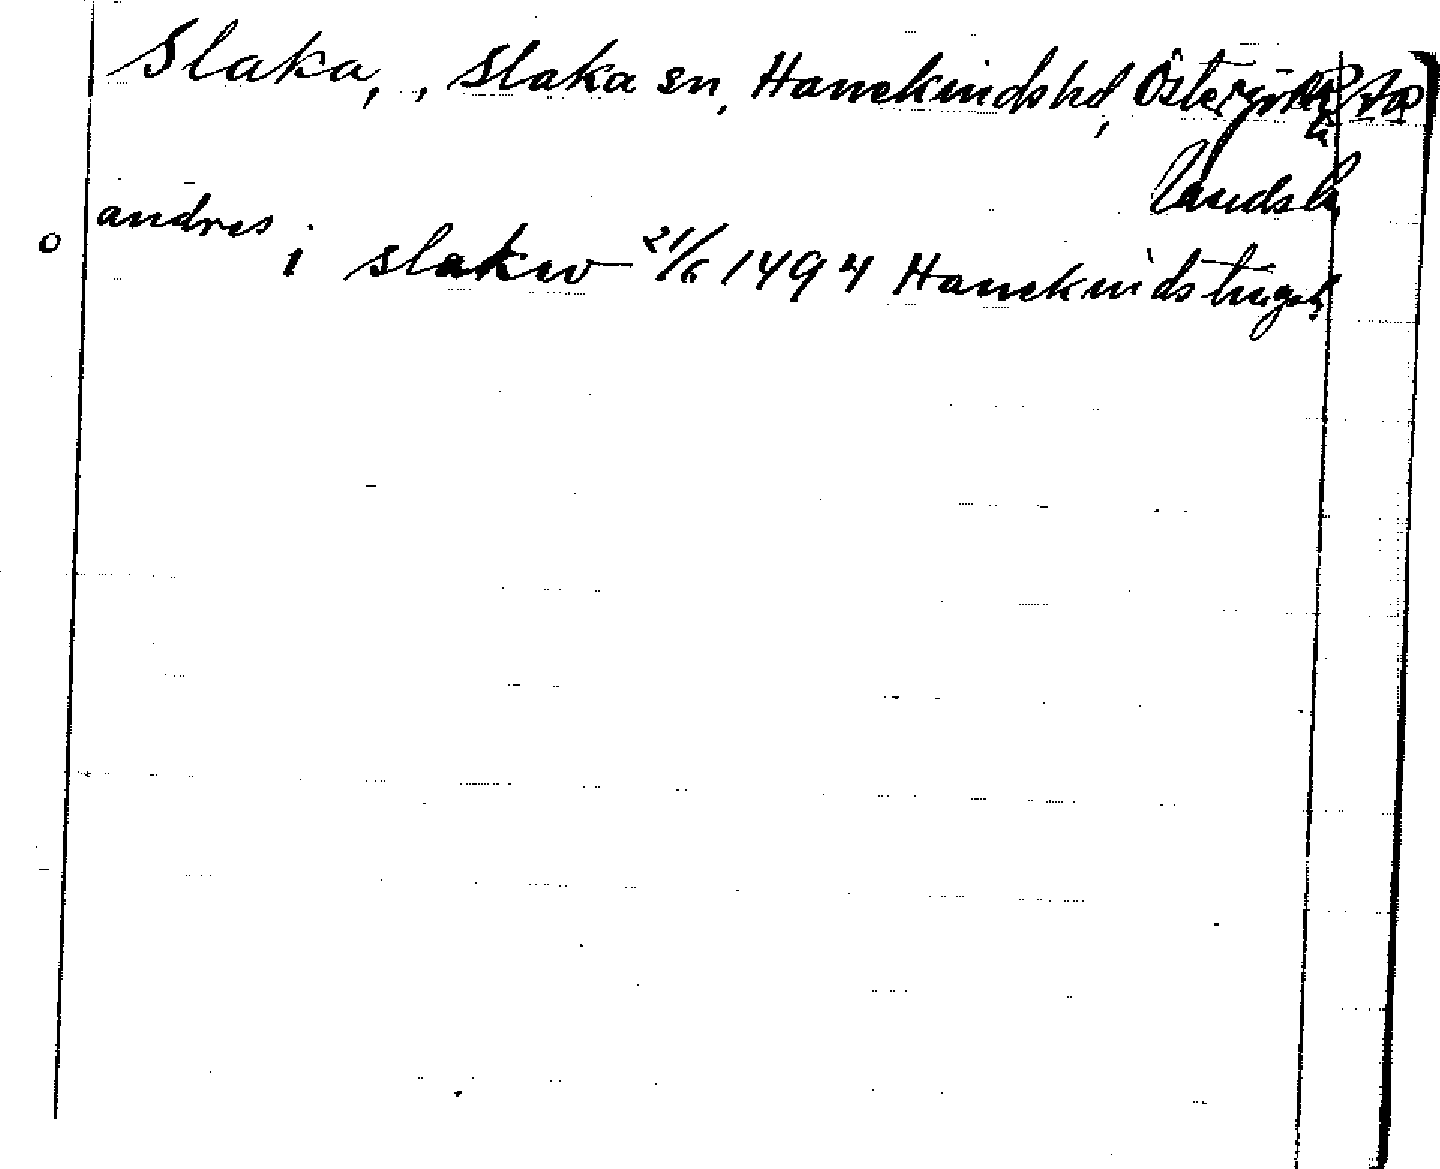 Slaka, , Slaka sn, Hanekindshd, Östergötl
landsb
andres i slakw 21/6 1494 Hanekindstings
o